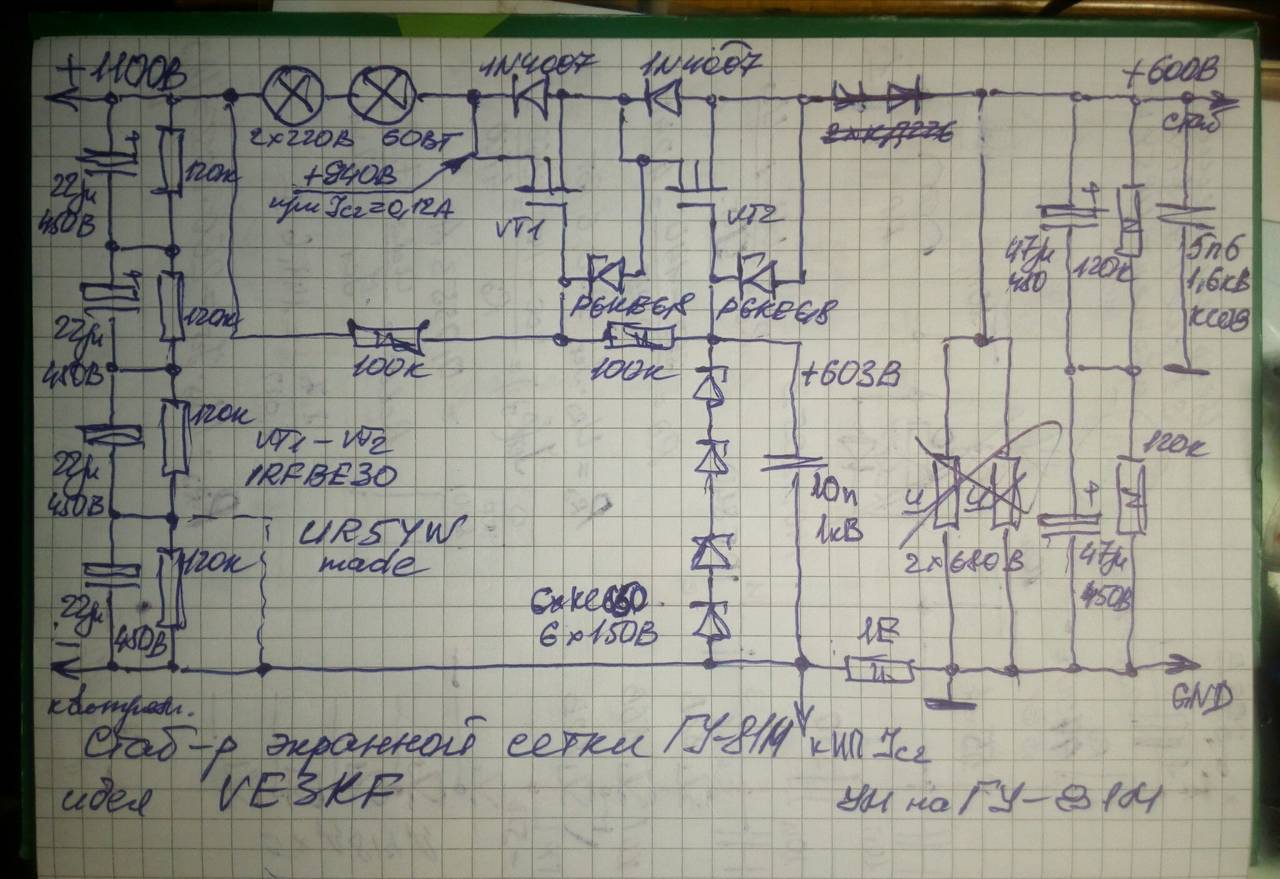 +1100В
1N4007
1N4007
+600В
стаб
2х220В 60Вт
2хКД226
22µ
450В
120к
+940В
при Jс2=0,12А
VT1
VT2
47µ
450
120к
5п6
1,6кВ
22µ
450В
120к
P6KE6,8
P6KE6,8
100к
100к
+603В
22µ
450В
120к
VT1-VT2
IRFBE30
120к
10п
1кВ
UR5YW
made
2х680В
47µ
450В
22µ
450В
120к
6х150В
1Е
GND
Стаб-р экранной сетки ГУ-81М
к ИП Jс2
идея VE3KF
УМ на ГУ-81М